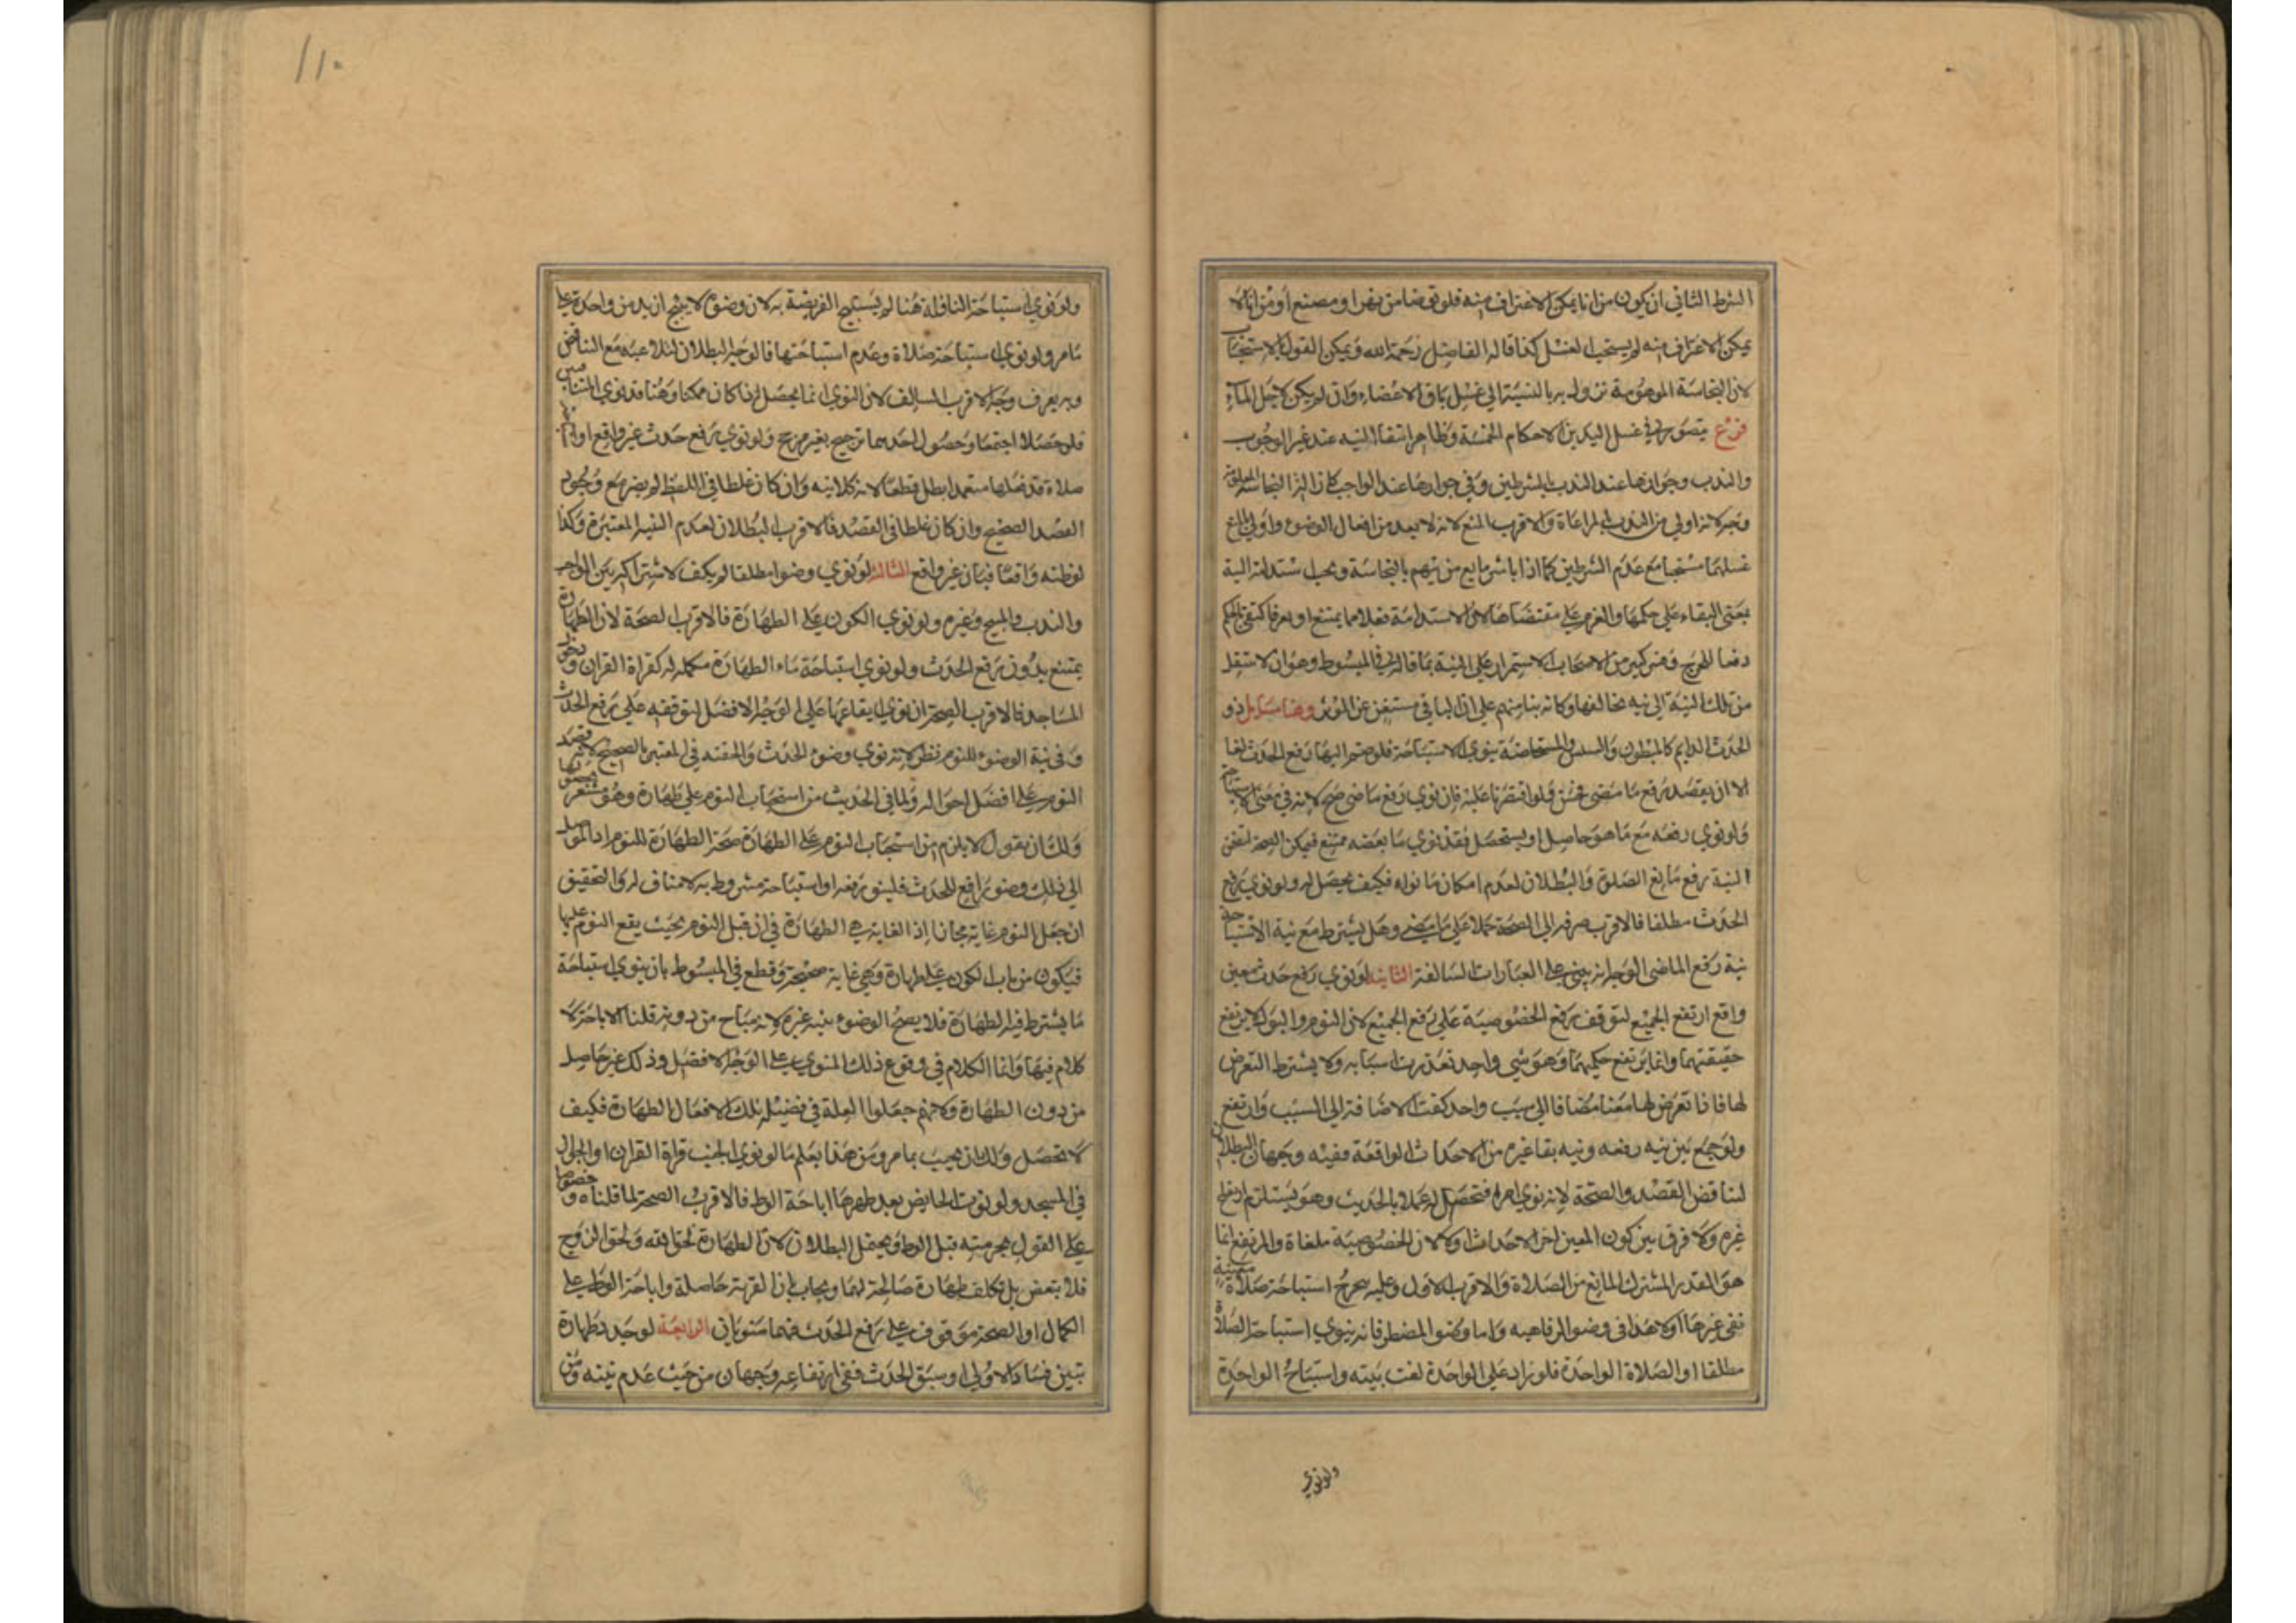 الشرط الثاني ان يكون من انا يمكن الاغتراف منه فلو توضا من نهر او مصنع او من انا لا
يمكن الاغتراف منه لم يستحب الغسل كذا قاله الفاضل رحمه الله ويمكن القول بالاستحباب
لان النجاسة الموهومة تزول به بالنسبة الي غسل باقي الاعضاء وان لم يكن لاجل الماء
فرع يتصور في غسل اليدين الاحكام الخمسة وظاهر انتفا النيه عند غير الوجوب
والندب وجوازها عند الندب بالشرطين وفي جوازها عند الواجب كازالة النجاسة المعلومة
وجه لانه اولي من الندب المراعاة والاقرب المنع لانه لا يعد من افعال الوضوء واولي بالمنع
غسلهما مستحبا مع عدم الشرطين كما اذا باشر مايع من يتهم بالنجاسة ويجب استدامة النية
بمعني البقاء علي حكمها والعزم علي مقتضاها لان الاستدامة فعلا مما يمتنع او يعسر فاكتفي بالحكم
دفعا للحرج وفسر كثير من الاصحاب الاستمرار علي النية بما قاله في المبسوط وهو ان لا ينتقل
من تلك النية الي نيه تخالفها وكانه بنا منهم علي ان الباقي مستغن عن المؤثر وهنا مسايل ذو
الحدث الدايم كالمبطون والسلس والمستحاضة ينوي الاستباحة فلو ضم اليها رفع الحدث لغا
الا ان يقصد رفع ما مضي فحسن ولو اقتصرنا عليه فان نوي رفع ما مضي صح لانه في معني الاستباحة
ولو نوي رفعه مع ما هو حاصل او سيحصل فقد نوي ما بعضه ممتنع فيمكن الصحة لتضمن
النية رفع مانع الصلوة والبطلان لعدم امكان ما نواه فكيف يحصل له ولو نوي رفع
الحدث مطلقا فالاقرب صرفه الي الصحة حملا علي ما مضي وهل يشترط مع نية الاستباحة
نية رفع الماضي الوجه انه يبني علي العبارات السالفة الثانية لو نوي رفع حدث معين
واقع ارتفع الجميع لتوقف رفع الخصوصية علي رفع الجميع لان النوم والبول لا يرتفع
حقيقتهما وانما يرتفع حكمهما وهو شي واحد تعددت اسبابه ولا يشترط التعرض
لها فاذا تعرض لها معنا مضافا الي سبب واحد كفت الاضافة الي السبب وارتفع
ولو جمع بين نيه رفعه ونيه بقا غيره من الاحداث الواقعة ففيه وجهان البطلان
لتناقض القصد والصحة لانه نوي امرا فتحصل له عملا بالحديث وهو يستلزم رفع
غيره ولا فرق بين كون المعين اخر الاحداث اولا لان الخصوصية ملغاة والمرتفع انما
هو القدر المشترك المانع من الصلاة والاقرب الاول وعليه يخرج استباحة صلاة معينة
نفي غيرها اولا هذا في وضوء الرفاهيه واما وضوء المضطر فانه ينوي استباحة الصلاة
مطلقا او الصلاة الواحدة فلو زاد علي الواحدة لغت نيته واستباح الواحدة
ولو نوي
١١٠
ولو نوي استباحة النافلة هنا لم يستبح الفريضة به لان وضوءه لا يبيح ازيد من واحدة علي
ما مر ولو نوي استباحة صلاة وعدم استباحتها فالوجه البطلان لتلاعبه مع التناقض
وبه يعرف وجه الاقرب السالف لان النوي انما يحصل اذا كان ممكنا وهنا قد نوي المتنافيين
فلو حصلا اجتمعا وحصول احدهما ترجيح بغير مرجح ولو نوي رفع حدث غير واقع او استباحة
صلاة قد فعلها متعمدا بطل قطعا لانه كلا نيه وان كان غلطا في اللفظ لم يضر مع وجود
القصد الصحيح وان كان غلطا في القصد فالاقرب البطلان لعدم النية المعتبرة وكذا
لو ظنه واقعا فبان غير واقع الثالثة لو نوي وضوا مطلقا لم يكف لاشتراكه بين الواجب
والندب والمبيح وغيره ولو نوي الكون علي الطهارة فالاقرب الصحة لان الطهارة
يمتنع بدون رفع الحدث ولو نوي استباحة ماء الطهارة مكمله له كقراة القران ودخول
المساجد فالاقرب الصحة ان نوي ايقاعها علي الوجه الافضل لتوقفه علي رفع الحدث
وفي نية الوضوء للنوم نظر لانه نوي وضوء الحدث والحقه في المعتبر بالصحيح لانه قصد
النوم علي افضل احواله ولما في الحديث من استحباب النوم علي طهارة وهو مشعر بحصولها
ولك ان تقول لا يلزم من استحباب النوم علي الطهارة صحة الطهارة للنوم اذ الموصل
الي ذلك وضوء رافع للحدث فلينو رفعه او استباحة مشروط به لا مناف له والتحقيق
ان جعل النوم غاية مجازا اذ الغاية هي الطهارة في ان قبل النوم بحيث يقع النوم عليها
فيكون من باب الكون علي طهارة وهي غاية صحيحة وقطع في المبسوط بان ينوي استباحة
ما يشترط فيه الطهارة فلا يصح الوضوء بنيه غيره لانه مباح من دونه قلنا الاباحة لا
كلام فيها وانما الكلام في وقوع ذلك المنوي علي الوجه الافضل وذلك غير حاصل
من دون الطهارة ولانهم جعلوا العلة في فضيلة تلك الافعال الطهارة فكيف
لا تحصل وله ان يجيب بما مر ومن هذا يعلم ما لو نوي الجنب قراة القران او الجواز
في المسجد ولو نوت الحايض بعد طهرها اباحة الوط فالاقرب الصحة لما قلناه وخصوصا
علي القول بحرمته قبل الوط ويحتمل البطلان لان الطهارة لحق الله ولحق الزوج
فلا يتبعض بل تكلف طهارة صالحة لهما ويجاب بان القربة حاصلة واباحة الوط علي
الكمال او الصحة موقوف علي رفع الحدث فهما منويان الرابعة لو جدد طهارة
تبين فساد الاولي او سبق الحدث ففي ارتفاعه وجهان من حيث عدم نيته ومن